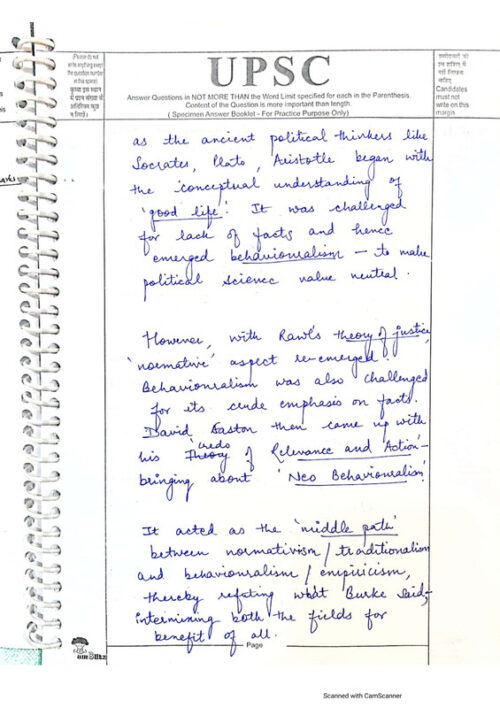 UPSC
Answer Questions in NOT MORE THAN the Word Limit specified for each in the Parenthesis.
Content of the Question is more important than length.
( Specimen Answer Booklet - For Practice Purpose Only)
Candidates
must not
write on this
margin
as the ancient political thinkers like
Socrates, Plato, Aristotle began with
the conceptual understanding of
'good life'. It was challenged
for lack of facts and hence
emerged behaviouralism – to make
political science value neutral.
However, with Rawl's theory of justice,
'normative' aspect re-emerged.
Behaviouralism was also challenged
for its crude emphasis on facts.
David Easton then came up with
credo
his Theory of Relevance and Action' –
bringing about 'Neo Behaviouralism'
It acted as the 'middle path'
between normativism / traditionalism
and behaviouralism / empiricism,
thereby refuting what Burke said,
intermixing both the fields for
benefit of all.
Page
Scanned with CamScanner